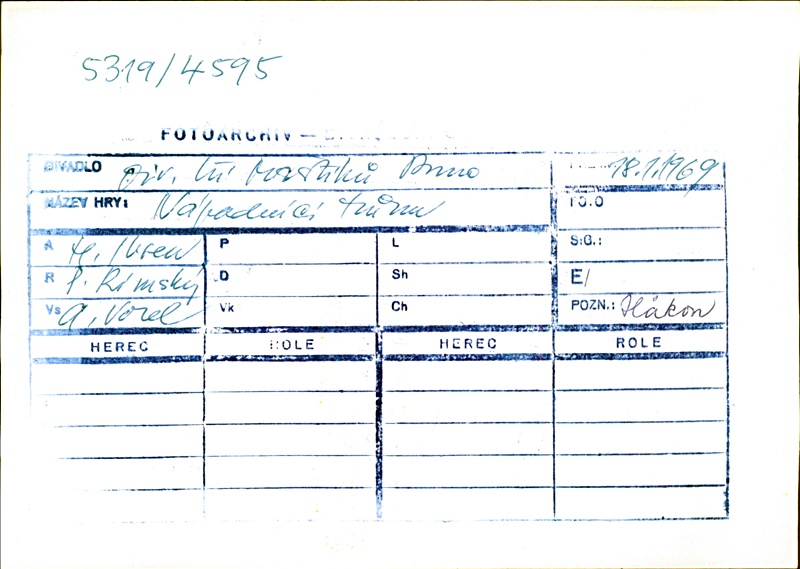 5319/4595
FOTOARCHIV —
DIVADLO div. bří Mrštíků Brno 18.1.1969
NÁZEV HRY: Nápadníci trůnu FOTO
A H. Ibsen P L SIG.:
R P. Rímský D Sh E/
Vs A. Vorel Vk Ch POZN.: Hákon
HEREC ROLE HEREC ROLE